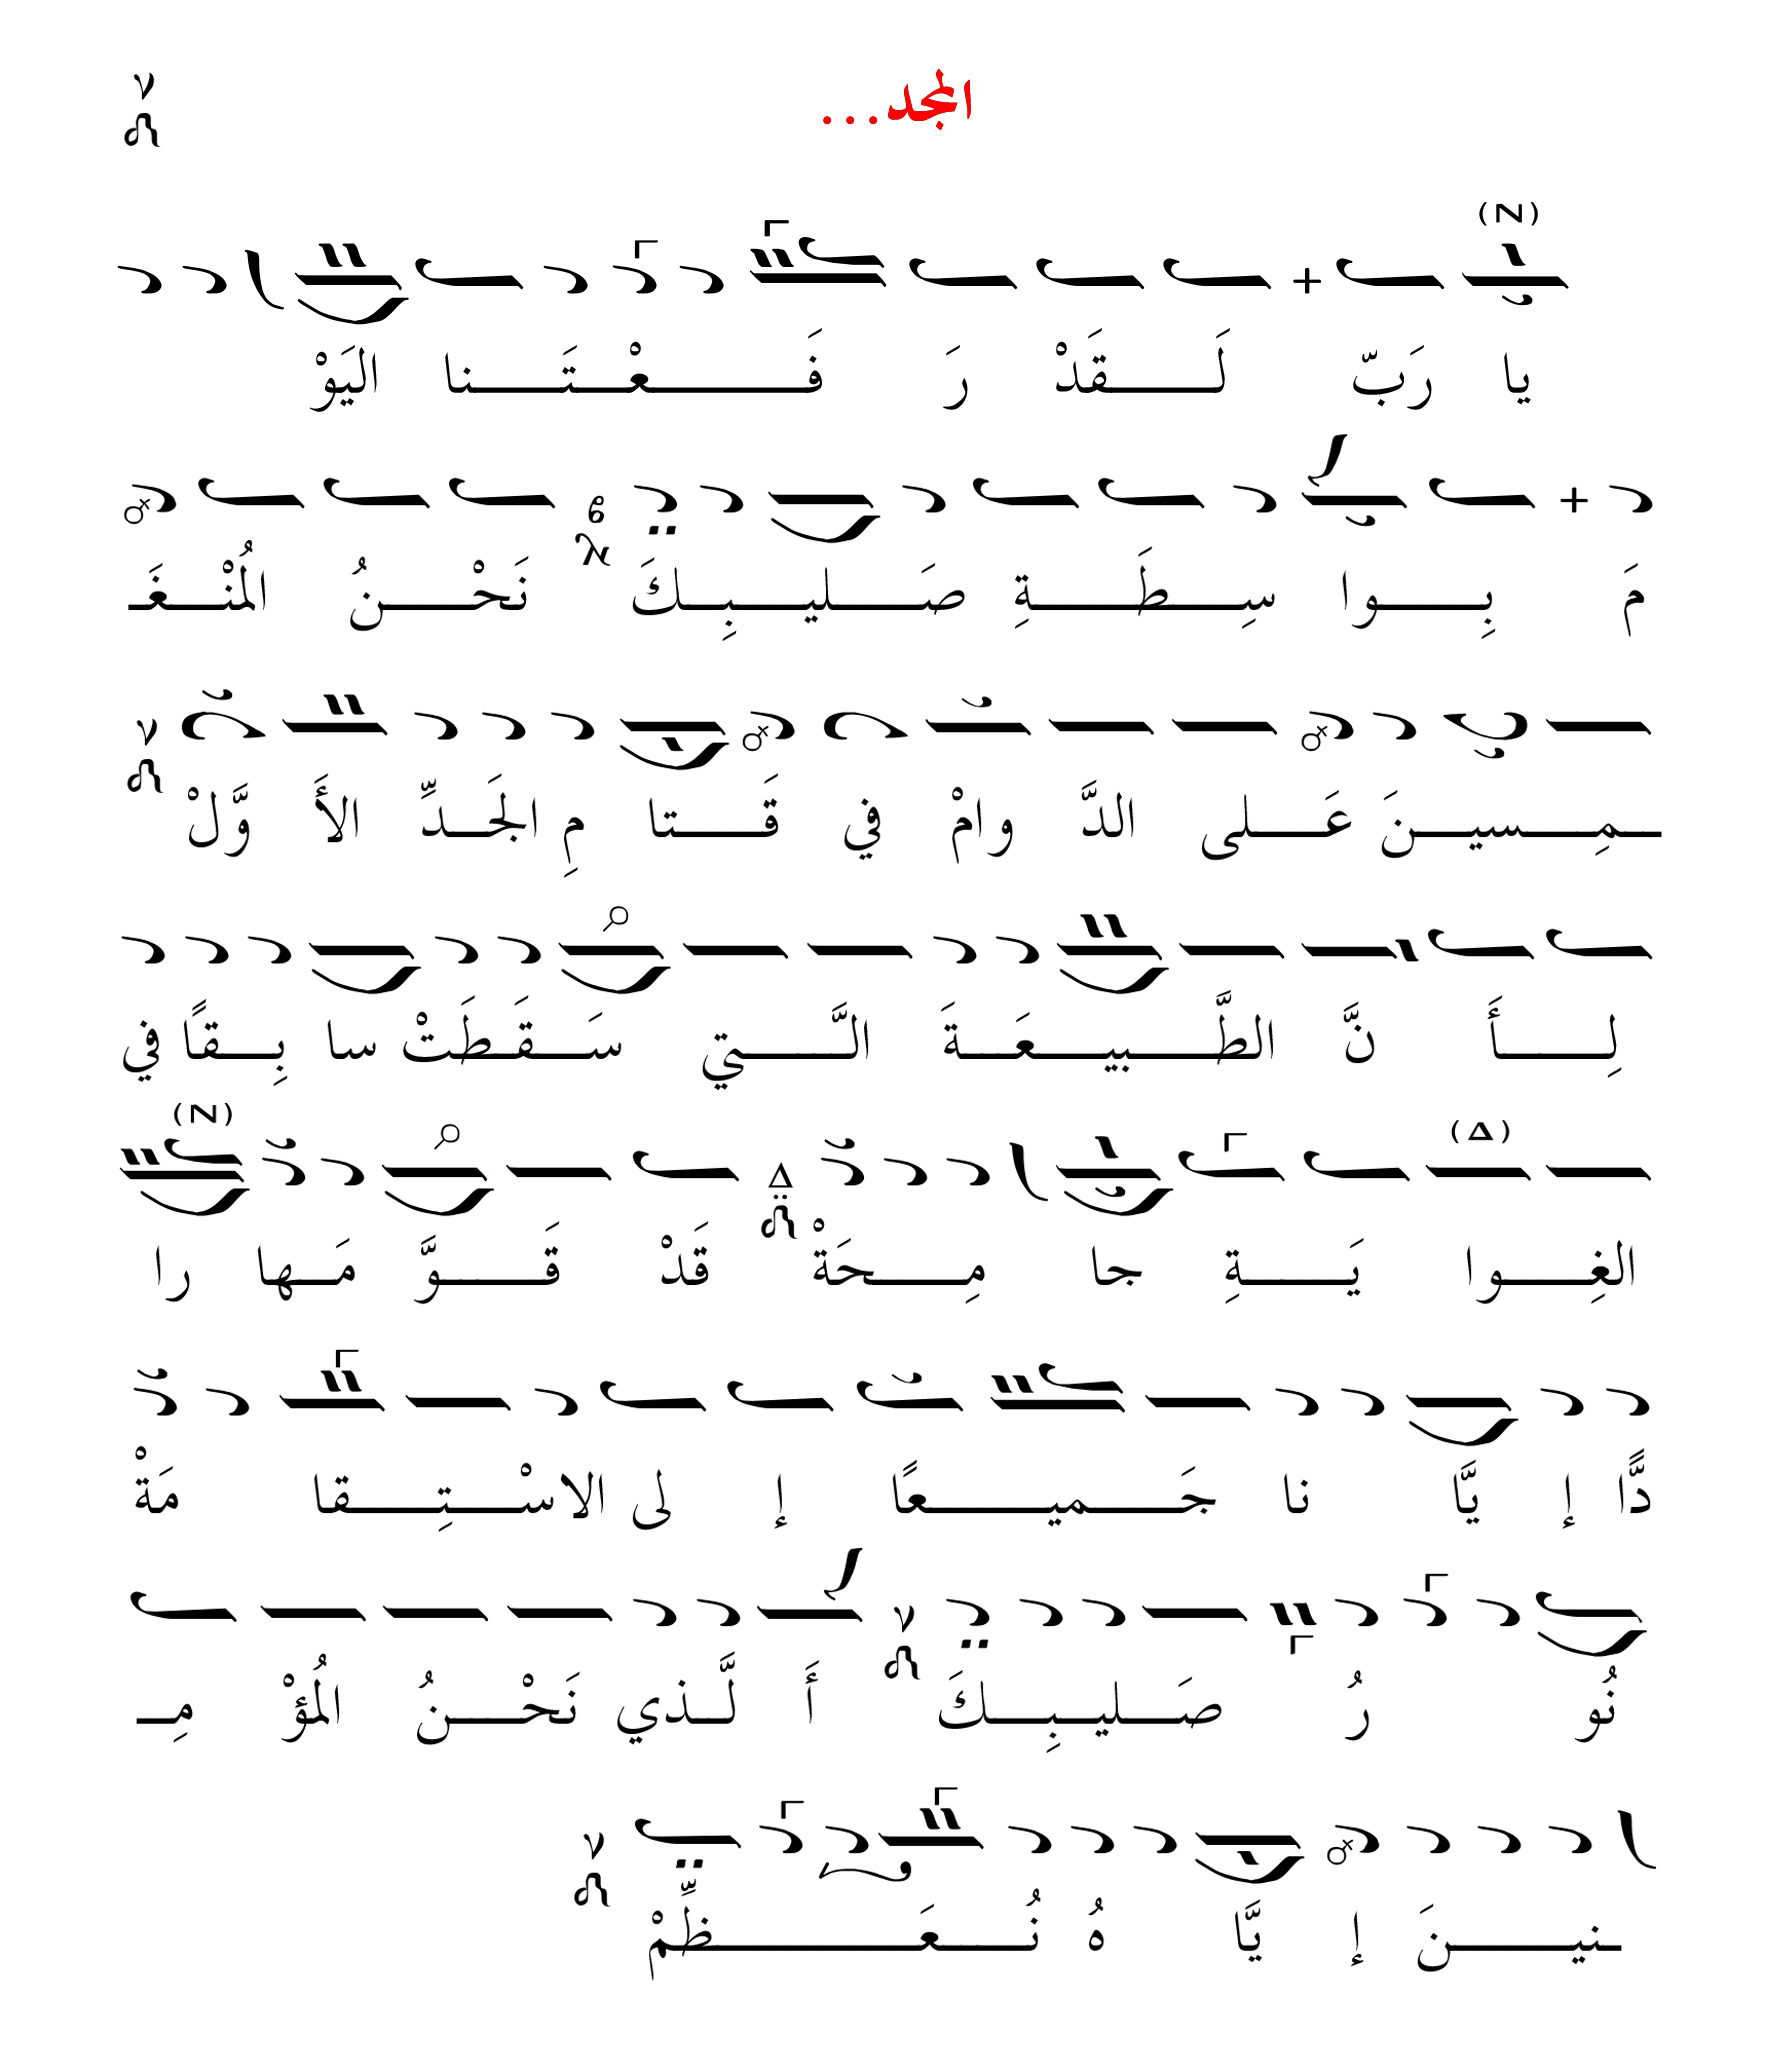 المجد...
يا رَبّ لَـقَدْ رَ فَـعْـتَـنا اليَوْ
مَ بِـوا سِـطَـةِ صَـليـبِـكَ نَحْـنُ المُنْـغَـ
ـمِـسيـنَ عَـلى الدَّ وامْ في قَـتا مِ الجَـدِّ الأَ وَّلْ
لِـأَ نَّ الطَّـبيـعَـةَ الَّـتي سَـقَـطَتْ سا بِـقًا في
الغِـوا يَـةِ جا مِـحَةْ قَدْ قَـوَّ مَـها را
دًّا إ يَّا نا جَـميـعًا إ لى الاسْـتِـقا مَةْ
نُو رُ صَـليـبِـكَ أَ لَّـذي نَحْـنُ المُؤْ مِـ
ـنيـنَ إ يَّا هُ نُـعَـظِّمْ